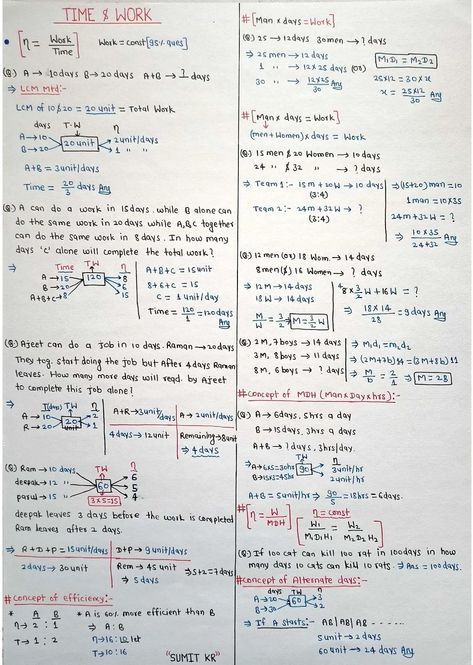 TIME & WORK
[η = Work/Time] Work = const [95% ques]
(Q) A → 10 days B → 20 days A+B → ? days
⇒ LCM Mtd:-
LCM of 10 & 20 = 20 unit = Total Work
days T.W η
A → 10 20 unit 2 unit/days
B → 20 1 " "
A+B = 3 unit/days
Time = 20/3 days Ans
(Q) A can do a work in 15 days. while B alone can
do the same work in 20 days while A,B,C together
can do the same work in 8 days. In how many
days 'c' alone will complete the total work?
⇒ Time TW η
A → 15 120 8
B → 20 6
A+B+C → 8 15
A+B+C = 15 unit
8+6+C = 15
C = 1 unit/day
Time = 120/1 = 120 days Ans
(Q) Ajeet can do a job in 10 days. Raman → 20 days
They tog. start doing the job but after 4 days Raman
leaves. How many more days will read. by Ajeet
to complete this job alone?
⇒ T(days) TW η
A → 10 20 unit 2
R → 20 1
A+R → 3 unit/days
4 days → 12 unit
A → 2 unit/days
Remaining → 8 unit
⇒ 4 days
(Q) Ram → 10 days
deepak → 12 "
parul → 15 "
TW 60 η
6
5
4
3x5=15
deepak leaves 3 days before the work is completed
Ram leaves after 2 days.
⇒ R+D+P = 15 unit/days
2 days → 30 unit
D+P → 9 unit/days
Rem → 45 unit
⇒ 5 days
⇒ 5+2 = 7 days
# concept of efficiency:-
* A B
η → 2 : 1
T → 1 : 2
* A is 60% more efficient than B
⇒ A : B
η → 16 : 10 let
T → 10 : 16
"SUMIT KR"
# [Man x days = Work]
(Q) 25 → 12 days 30 men → ? days
⇒ 25 men → 12 days
1 " → 12x25 days (OR)
30 " → 12x25/30 Ans
M₁D₁ = M₂D₂
25x12 = 30 x x
x = 25x12/30 Ans
# [Man x days = Work]
(men + Women) x days = Work
(Q) 15 men & 20 Women → 10 days
24 " & 32 " → ? days
⇒ Team 1:- 15m + 20W → 10 days
(3:4)
Team 2:- 24m + 32W → ?
(3:4)
⇒ (15+20) man = 10
1 man = 10x35
24m + 32W = ?
⇒ 10x35/24+32 Ans
(Q) 12 men (OR) 18 Wom. → 14 days
8 men & 16 Women → ? days
⇒ 12M → 14 days
18W → 14 days
M/W = 3/2 ⇒ M = 3/2 W
8 x 3/2 W + 16W = ?
⇒ 18x14/28 = 9 days Ans
(Q) 2M, 7 boys → 14 days
3M, 8 boys → 11 days
8M, 6 boys → ? days
⇒ M₁d₁ = m₂d₂
⇒ (2M+7b)14 = (3M+8b)11
⇒ M/b = 2/1 ⇒ M = 2B
# concept of MDH (Man x Day x hrs):-
(Q) A → 6 days, 5 hrs a day
B → 15 days, 3 hrs a day
A+B → ? days, 3 hrs/day.
⇒ A → 6x5 = 30 hs TW 90 η 3 unit/hr
B → 15x3 = 45 hs 2 unit/hs
A+B = 5 unit/hrs ⇒ 90/5 = 18 hrs = 6 days.
# [η = W/MDH] η = const
[W₁/M₁D₁H₁ = W₂/M₂D₂H₂]
(Q) If 100 cat can kill 100 rat in 100 days in how
many days 10 cats can kill 10 rats. ⇒ Ans = 100 days.
# concept of Alternate days:-
days TW η
A → 20 60 3
B → 30 2
⇒ If A starts:- AB| AB| AB -----
5 unit → 2 days
60 unit → 24 days Ans